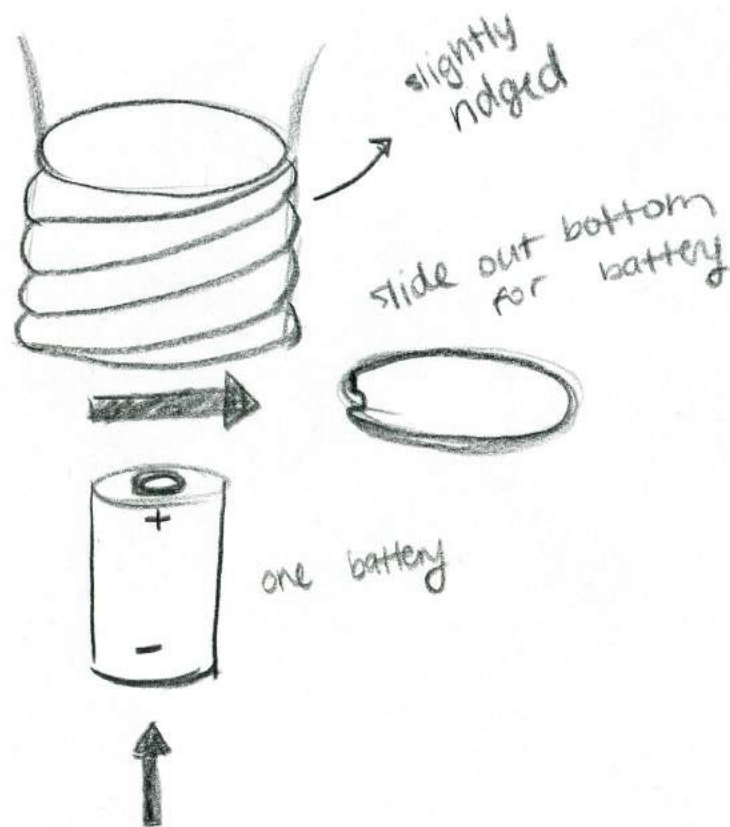 slightly
ridged
slide out bottom
for battery
+
one battery
-